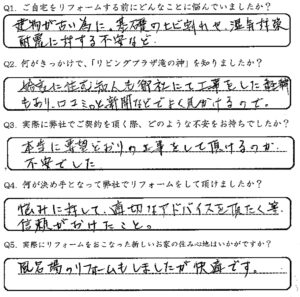 Q1. ご自宅をリフォームする前にどんなことに悩んでいましたか?
建物が古い為に、基礎のヒビ割れや、湿気対策
耐震に対する不安など。
Q2. 何がきっかけで、「リビングプラザ滝の神」を知りましたか?
近くに住む知人も御社にて工事をした経緯
もあり、口コミや新聞などでよく見かけるので。
Q3. 実際に弊社でご契約を頂く際、どのような不安をお持ちでしたか?
本当に希望どおりの工事をして頂けるのか
不安でした
Q4. 何が決め手となって弊社でリフォームをして頂けましたか?
悩みに対して、適切なアドバイスを頂たく等
信頼がおけたこと。
Q5. 実際にリフォームをおこなわった新しいお家の住み心地はいかがですか?
風呂場のリフォームもしましたが快適です。